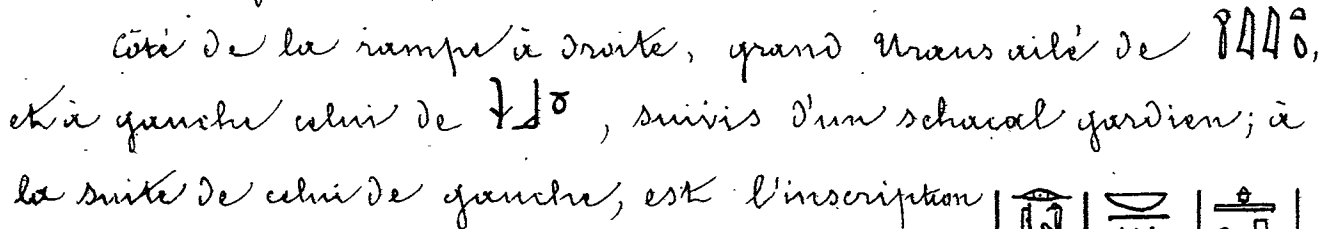 Côté de la rampe à droite, grand Uraeus ailé de
et à gauche celui de , suivis d'un schacal gardien; à
la suite de celui de gauche, est l'inscription